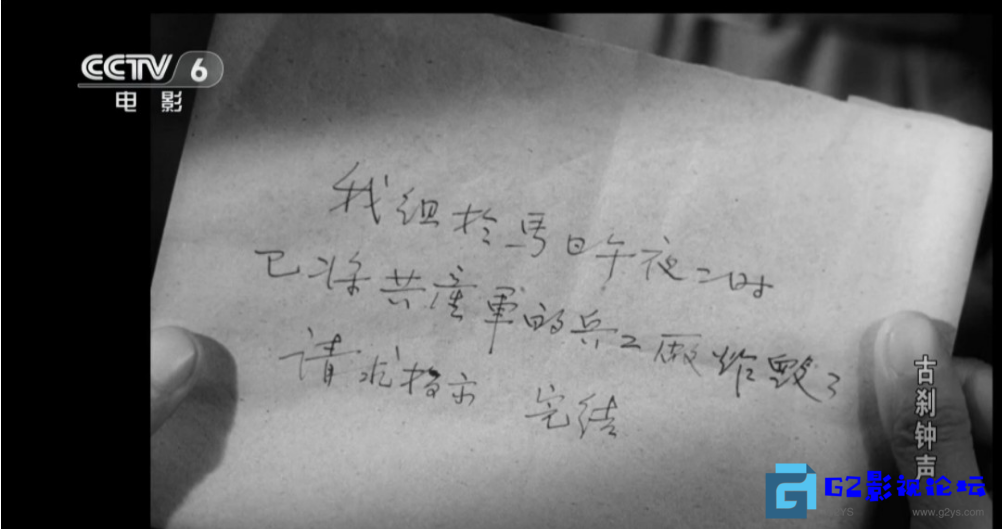 CCTV 6
电影
我组於馬日午夜二时
已将共產軍的兵工廠炸毁了
请求指示 完结
古刹钟声
G2影视论坛
www.g2ys.com